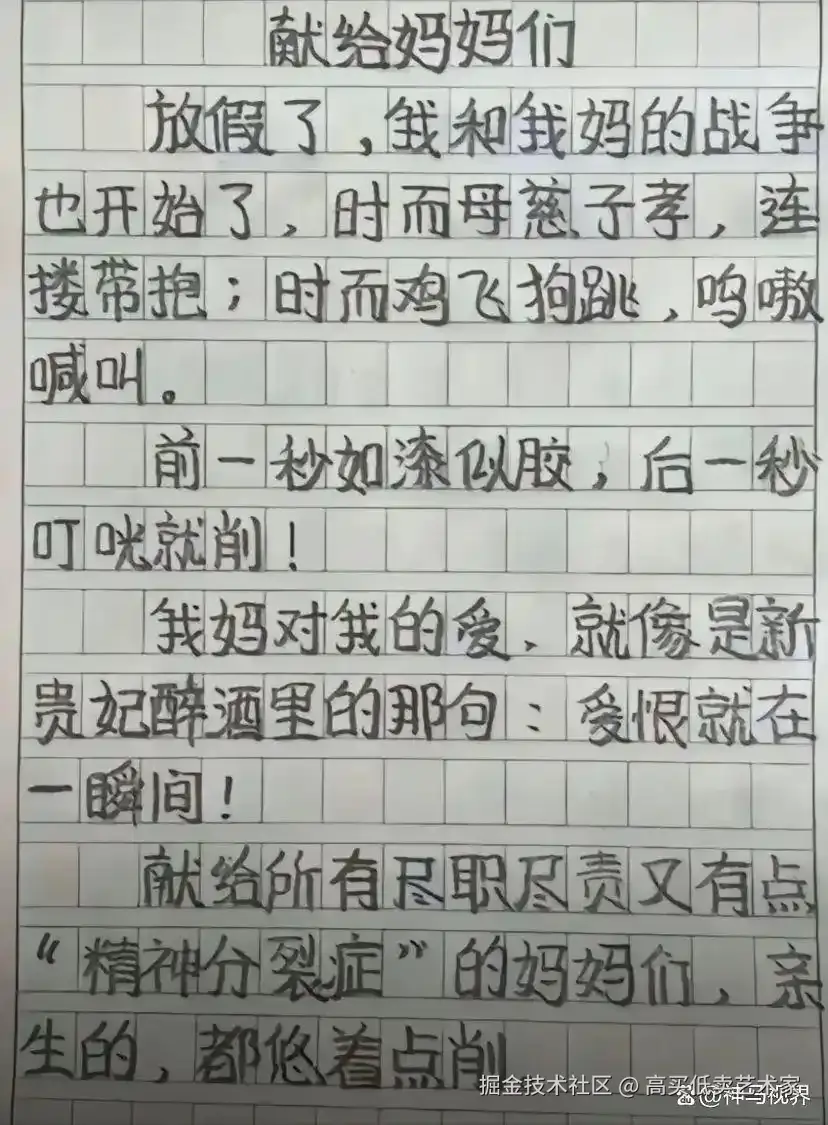 献给妈妈们
放假了，我和我妈的战争
也开始了，时而母慈子孝，连
搂带抱；时而鸡飞狗跳，呜嗷
喊叫。
前一秒如漆似胶，后一秒
叮咣就削！
我妈对我的爱、就像是新
贵妃醉酒里的那句：爱恨就在
一瞬间！
献给所有尽职尽责又有点
“精神分裂症”的妈妈们，亲
生的，都悠着点削
掘金技术社区 @ 高买低卖艺术家
@祥马视界